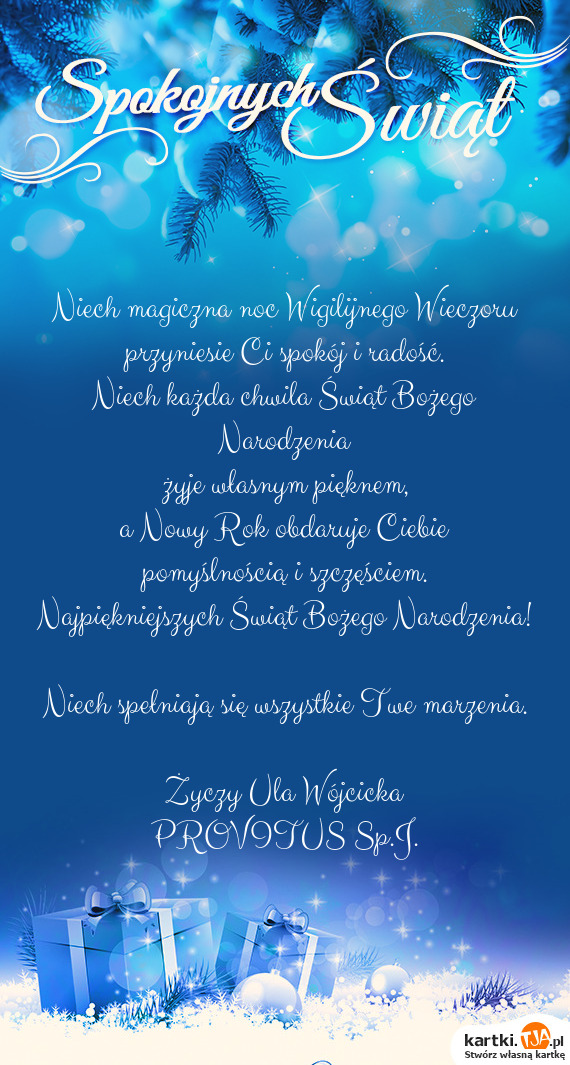 Spokojnych Świąt
Niech magiczna noc Wigilijnego Wieczoru
przyniesie Ci spokój i radość.
Niech każda chwila Świąt Bożego
Narodzenia
żyje własnym pięknem,
a Nowy Rok obdaruje Ciebie
pomyślnością i szczęściem.
Najpiękniejszych Świąt Bożego Narodzenia!
Niech spełniają się wszystkie Twe marzenia.
Życzy Ula Wójcicka
PROVITUS Sp.J.
kartki.TJA.pl
Stwórz własną kartkę